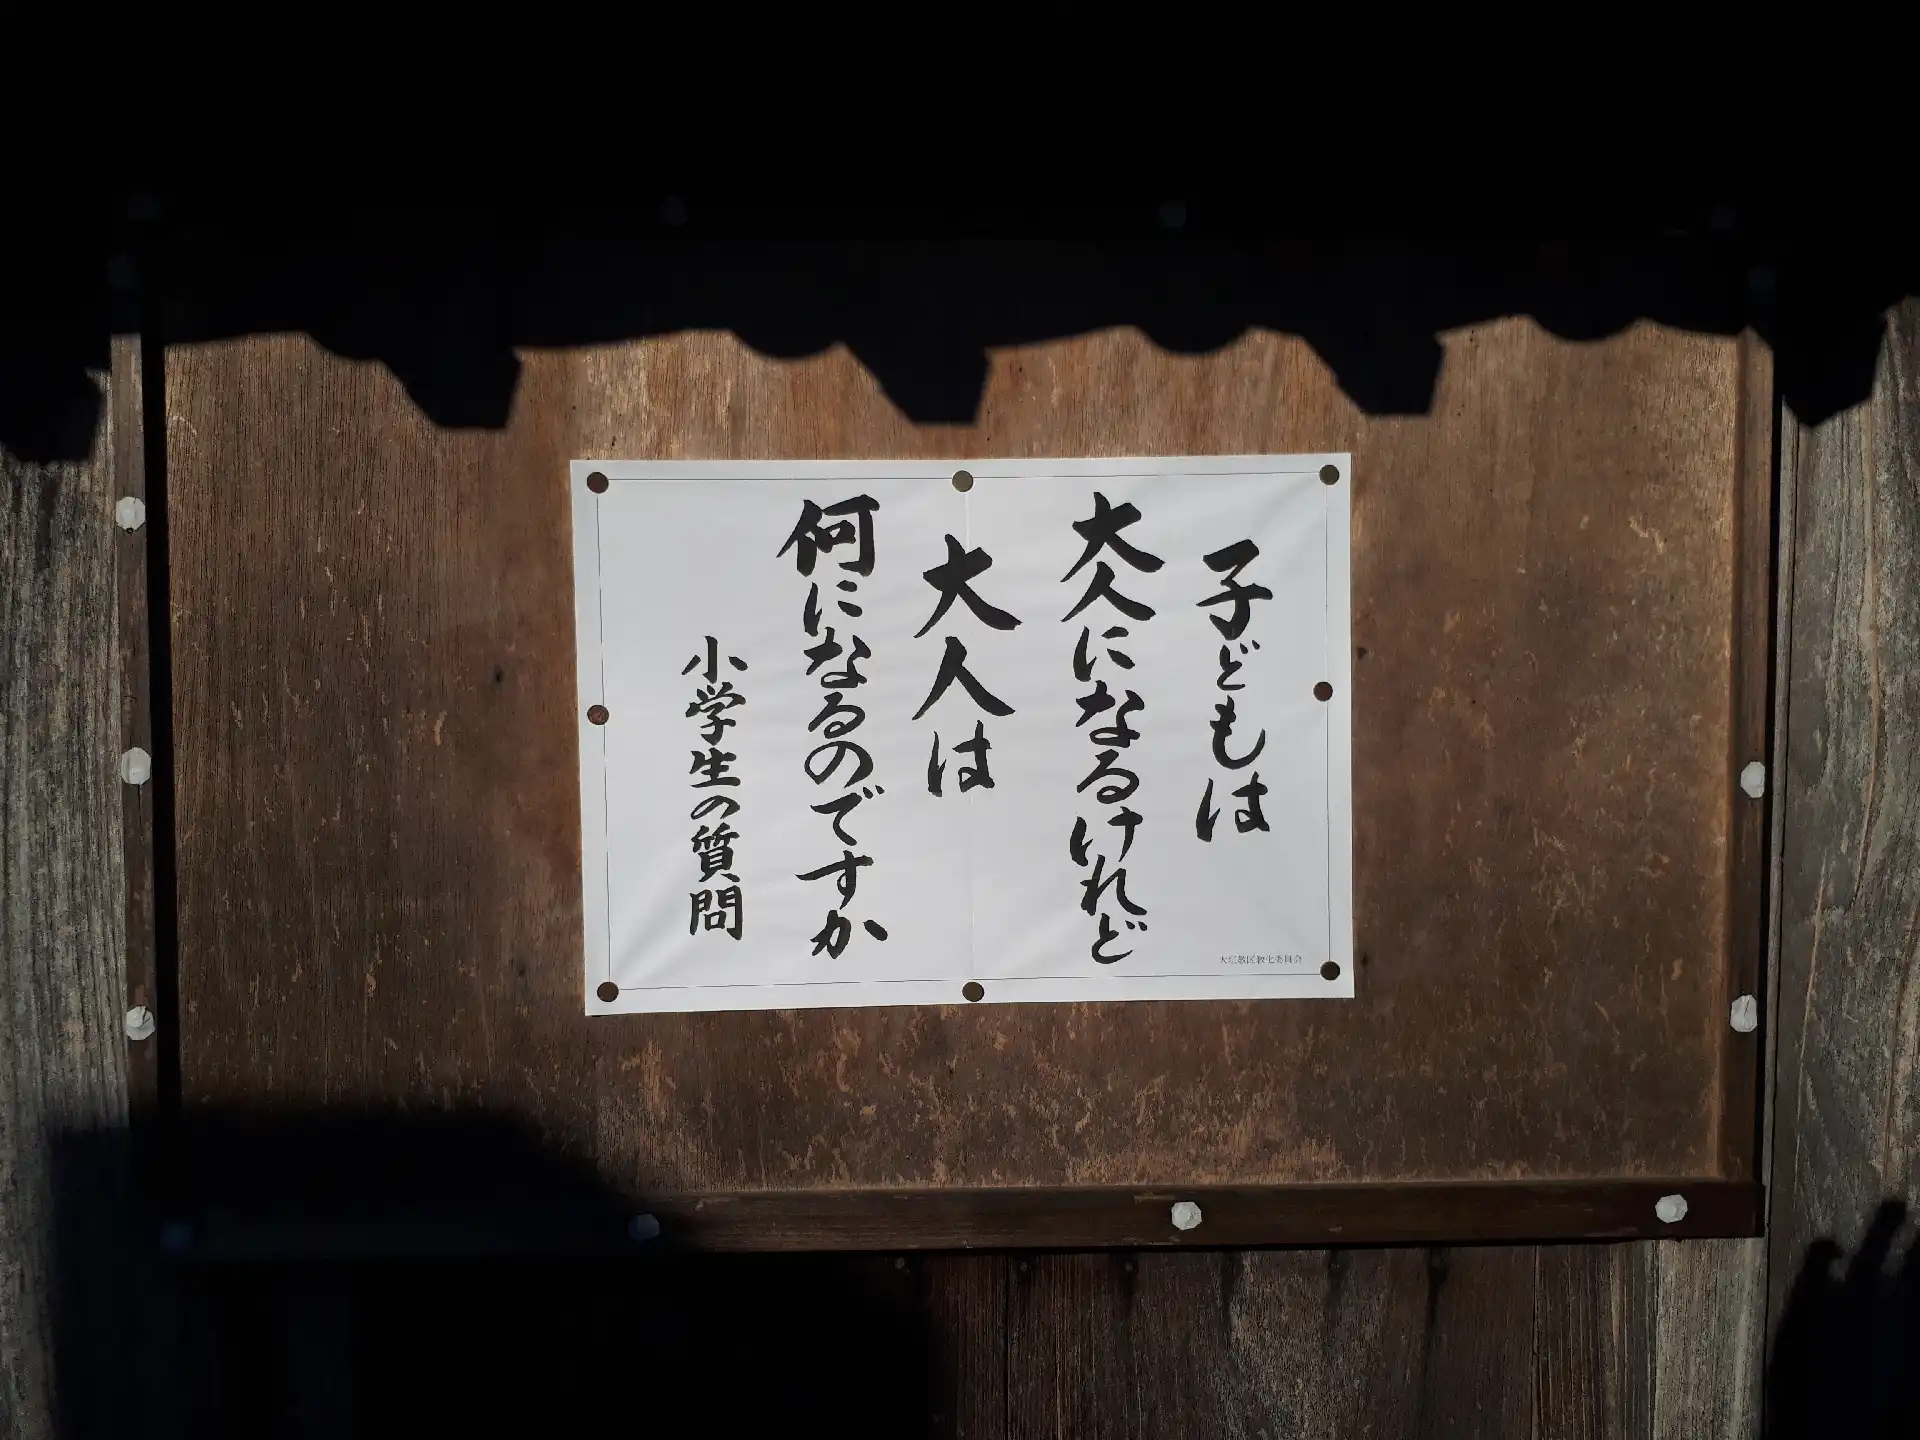 子どもは
大人になるけれど
大人は
何になるのですか
小学生の質問
大垣教区教化委員会